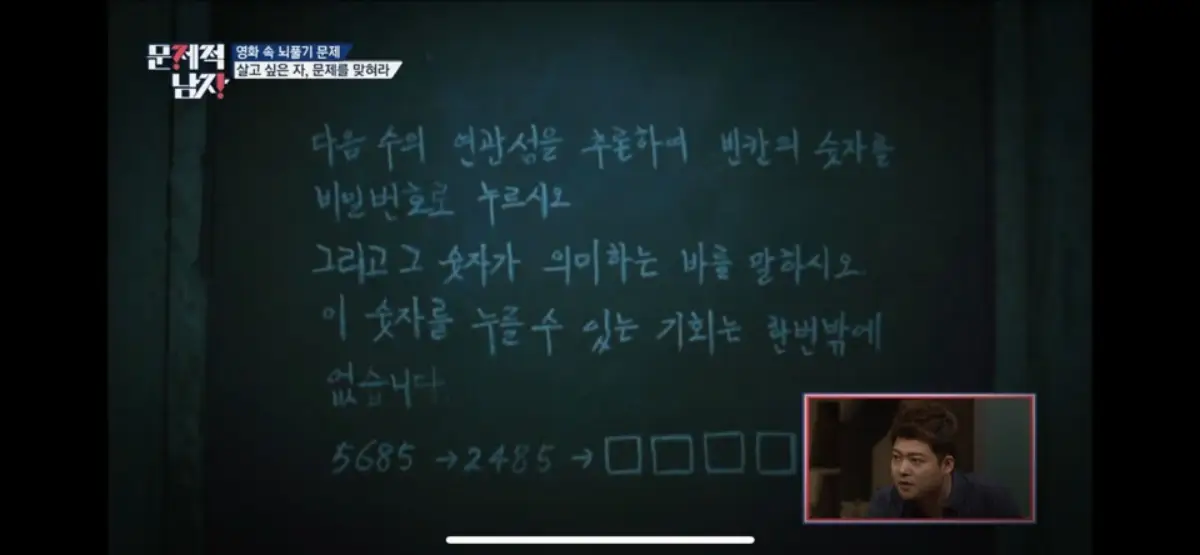 문제적
남자
영화 속 뇌풀기 문제
살고 싶은 자, 문제를 맞혀라
다음 수의 연관성을 추론하여 빈칸의 숫자를
비밀번호로 누르시오
그리고 그 숫자가 의미하는 바를 말하시오.
이 숫자를 누를 수 있는 기회는 한번밖에
없습니다.
5685 → 2485 → □□□□